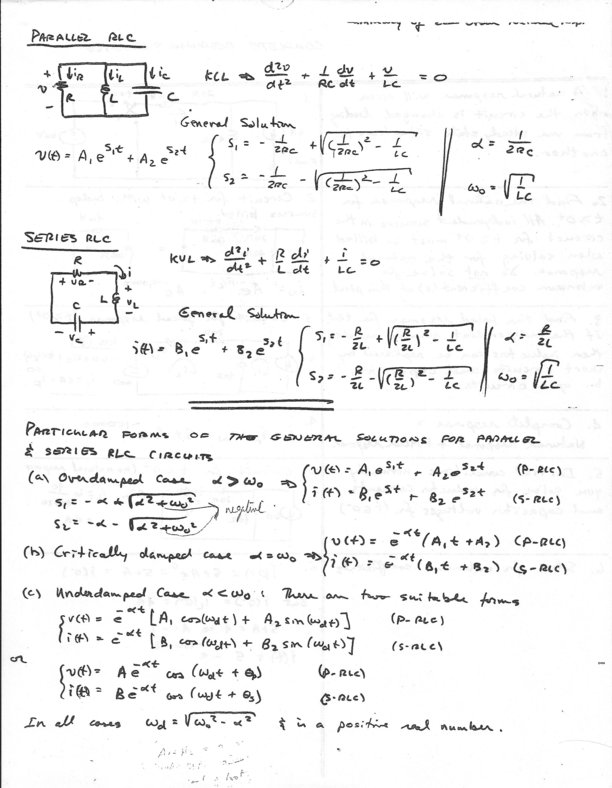 Summary of 2nd Order
PARALLEL RLC
+ ↓iR ↓iL ↓iC
v R L C
-
KCL ⇒ d²v/dt² + 1/RC dv/dt + v/LC = 0
General Solution
v(t) = A₁e^{s₁t} + A₂e^{s₂t}
s₁ = -1/2RC + √((1/2RC)² - 1/LC)
s₂ = -1/2RC - √((1/2RC)² - 1/LC)
α = 1/2RC
ω₀ = √(1/LC)
SERIES RLC
R i
+ vR -
L + vL -
C
- vC +
KVL ⇒ d²i/dt² + R/L di/dt + i/LC = 0
General Solution
i(t) = B₁e^{s₁t} + B₂e^{s₂t}
s₁ = -R/2L + √((R/2L)² - 1/LC)
s₂ = -R/2L - √((R/2L)² - 1/LC)
α = R/2L
ω₀ = √(1/LC)
PARTICULAR FORMS OF THE GENERAL SOLUTIONS FOR PARALLEL
& SERIES RLC CIRCUITS
(a) Overdamped Case α > ω₀ ⇒ v(t) = A₁e^{s₁t} + A₂e^{s₂t} (P-RLC)
i(t) = B₁e^{s₁t} + B₂e^{s₂t} (S-RLC)
s₁ = -α + √(α² + ω₀²)
negative
s₂ = -α - √(α² + ω₀²)
(b) Critically damped case α = ω₀ ⇒ v(t) = e^{-αt}(A₁t + A₂) (P-RLC)
i(t) = e^{-αt}(B₁t + B₂) (S-RLC)
(c) Underdamped Case α < ω₀ : There are two suitable forms
v(t) = e^{-αt} [A₁ cos(ωdt) + A₂ sin(ωdt)] (P-RLC)
i(t) = e^{-αt} [B₁ cos(ωdt) + B₂ sin(ωdt)] (S-RLC)
or
v(t) = A e^{-αt} cos (ωdt + θs) (P-RLC)
i(t) = B e^{-αt} cos (ωdt + θs) (S-RLC)
In all cases ωd = √(ω₀² - α²) & is a positive real number.